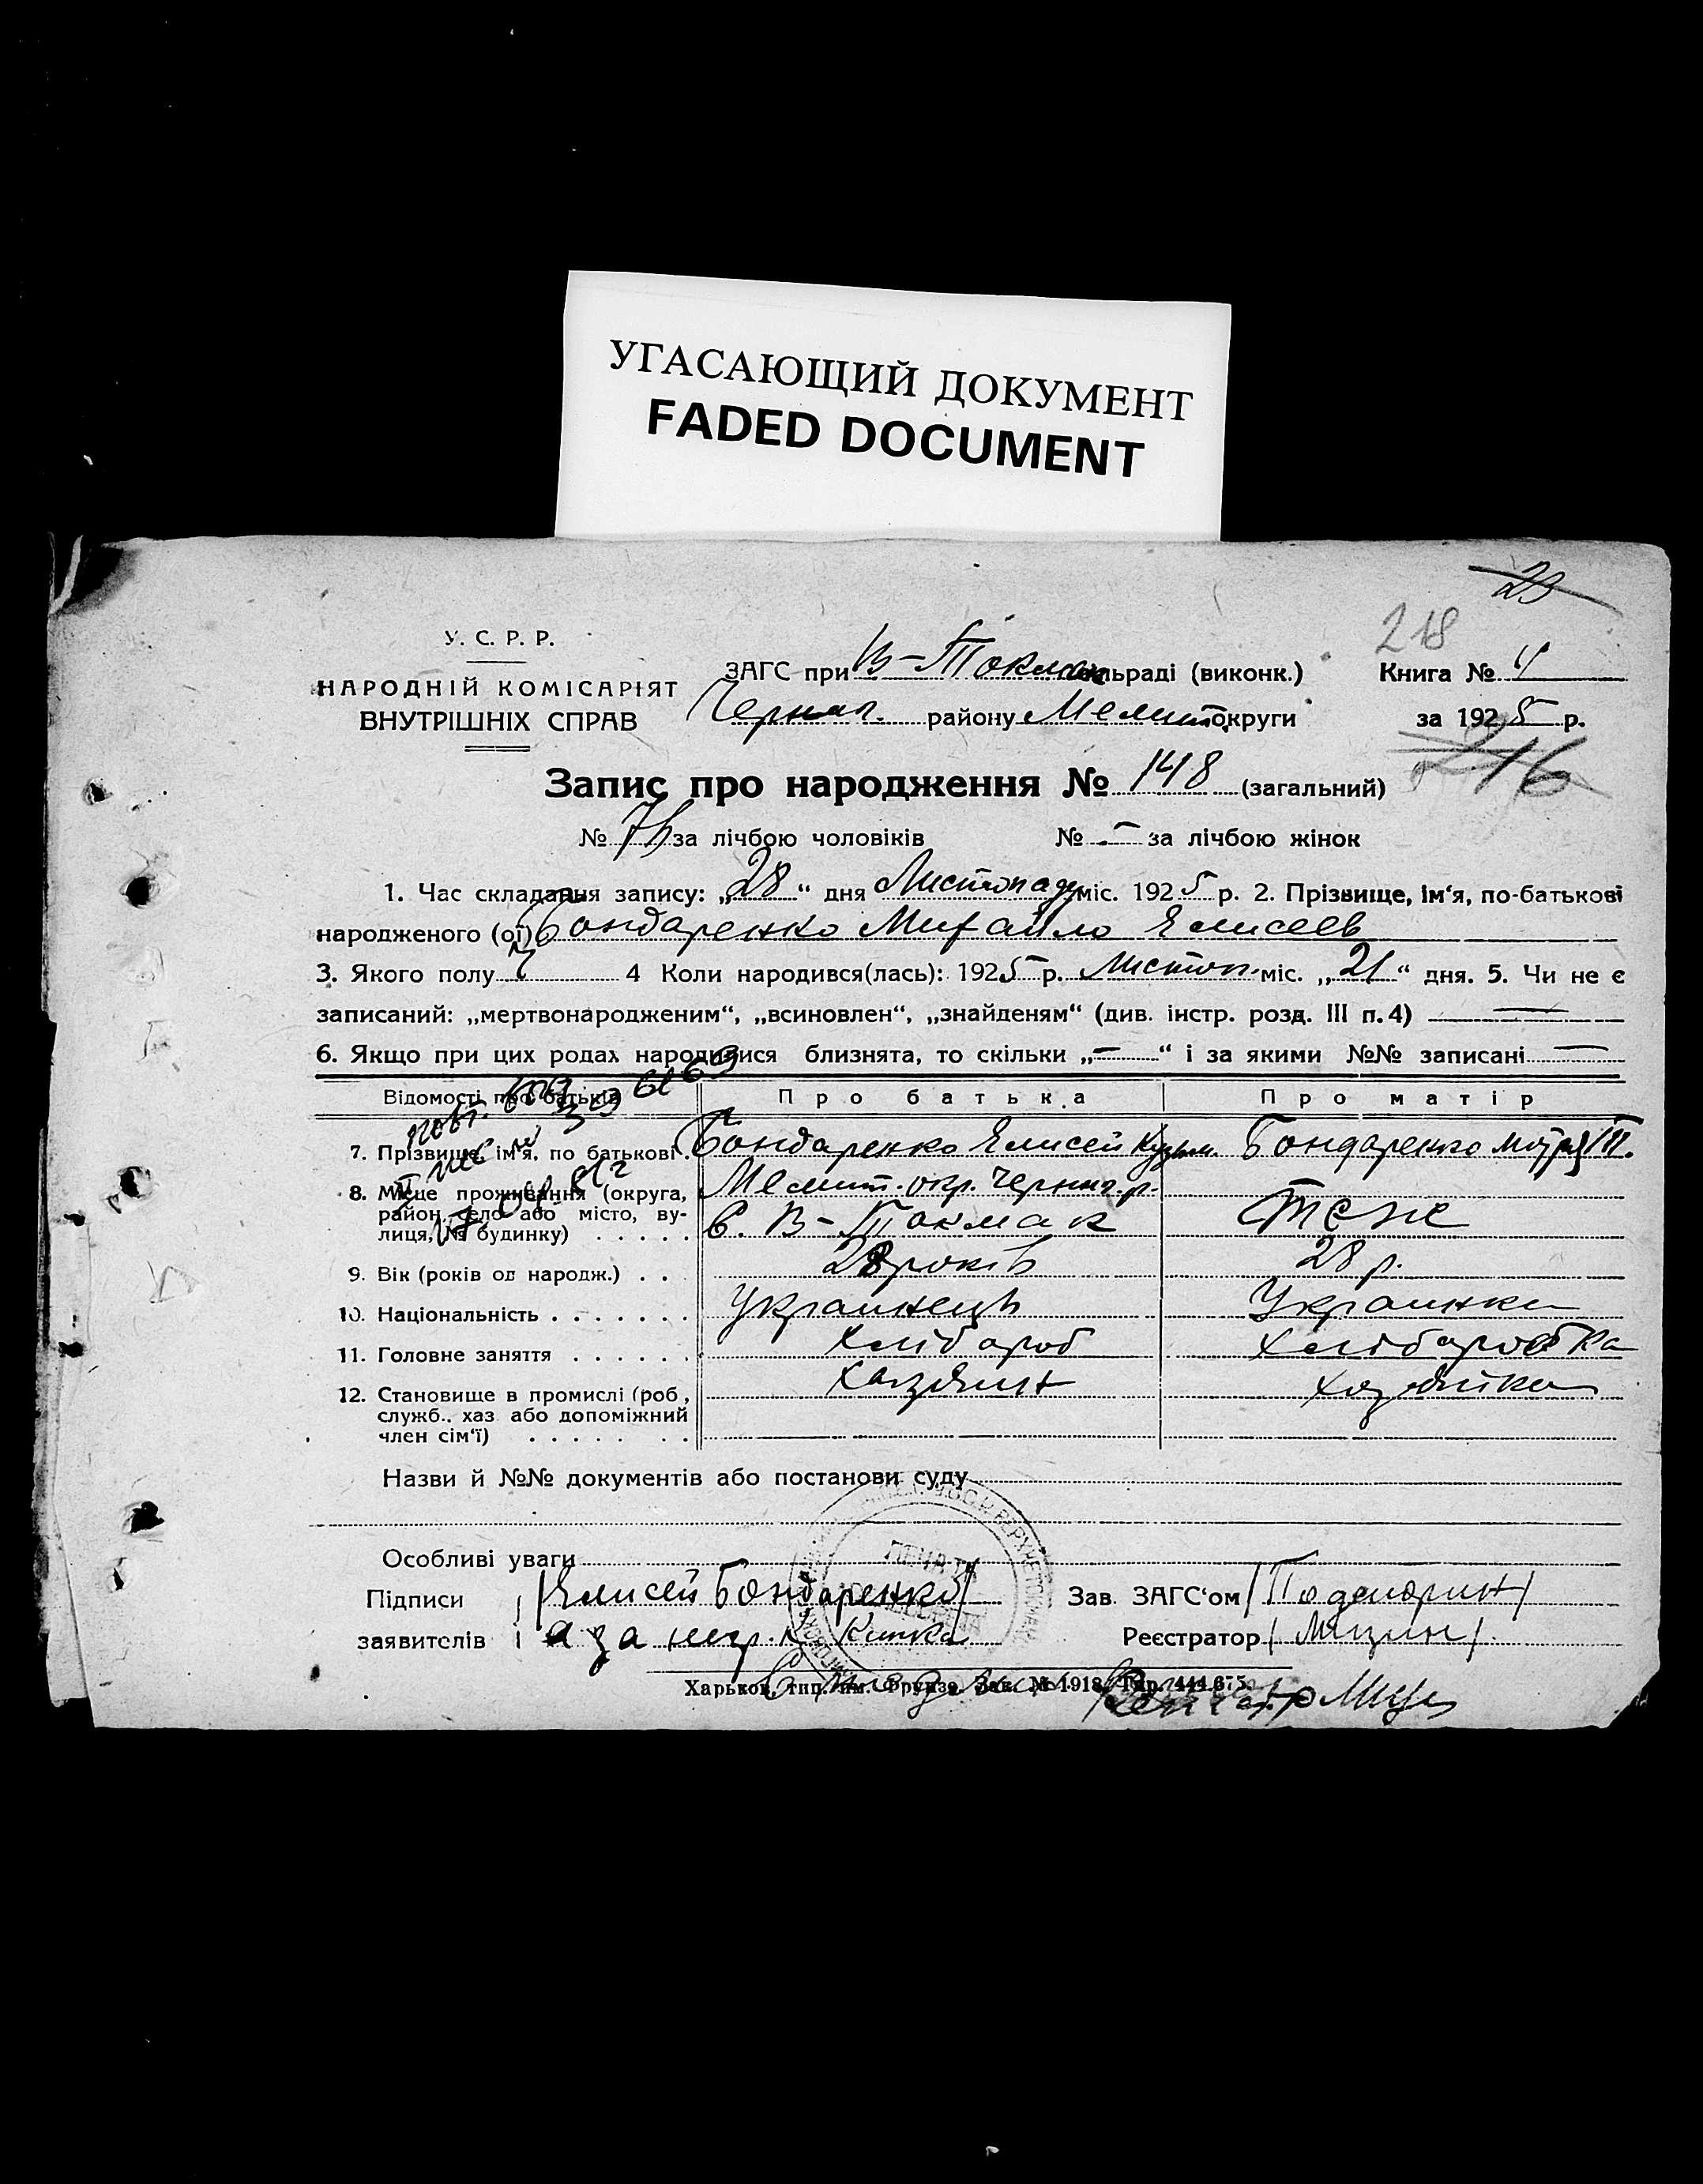 УГАСАЮЩИЙ ДОКУМЕНТ
FADED DOCUMENT
23
218
У. С. Р. Р.
НАРОДНІЙ КОМІСАРІЯТ
ВНУТРІШНІХ СПРАВ
ЗАГС при В-Токмак льраді (виконк.)
Черниг. району Мелит. округи
Книга №
за 1925 р.
216
Запис про народження № 148 (загальний)
№ за лічбою чоловіків № - за лічбою жінок
1. Час складання запису: „28“ дня Листопаду міс. 1925 р. 2. Прізвище, ім'я, по-батькові
народженого (ої) Бондаренко Михайло Елисеев
3. Якого полу Ч 4 Коли народився(лась): 1925 р. Листоп. міс. „21“ дня. 5. Чи не є
записаний: „мертвонародженим“, „всиновлен“, „знайденям“ (див. інстр. розд. III п. 4) —
6. Якщо при цих родах народилися близнята, то скільки „—“ і за якими №№ записані —
Відомості про батьків Про батька Про матір
7. Прізвище, ім'я, по батькові. Бондаренко Елисей Кузьм. Бондаренко
8. Місце проживання (округа, Мелит. окр. Черниг. р.
район, село або місто, ву- с. В-Токмак Теж
лиця, № будинку) . . . . .
9. Вік (років од народж.) . . 28 років 28 р.
10. Національність . . . . . . . Украинець Украинка
11. Головне заняття . . . . . . Хлібороб Хліборобка
12. Становище в промислі (роб, Хазяин Хазяйка
служб.. хаз або допоміжний
член сім'ї) . . . . . . .
Назви й №№ документів або постанови суду
Особливі уваги
Підписи Елисей Бондаренко Зав. ЗАГС'ом
заявителів а за негр. Реєстратор
Харьков, тип. им. Фрунзе. Зак. № 1918.